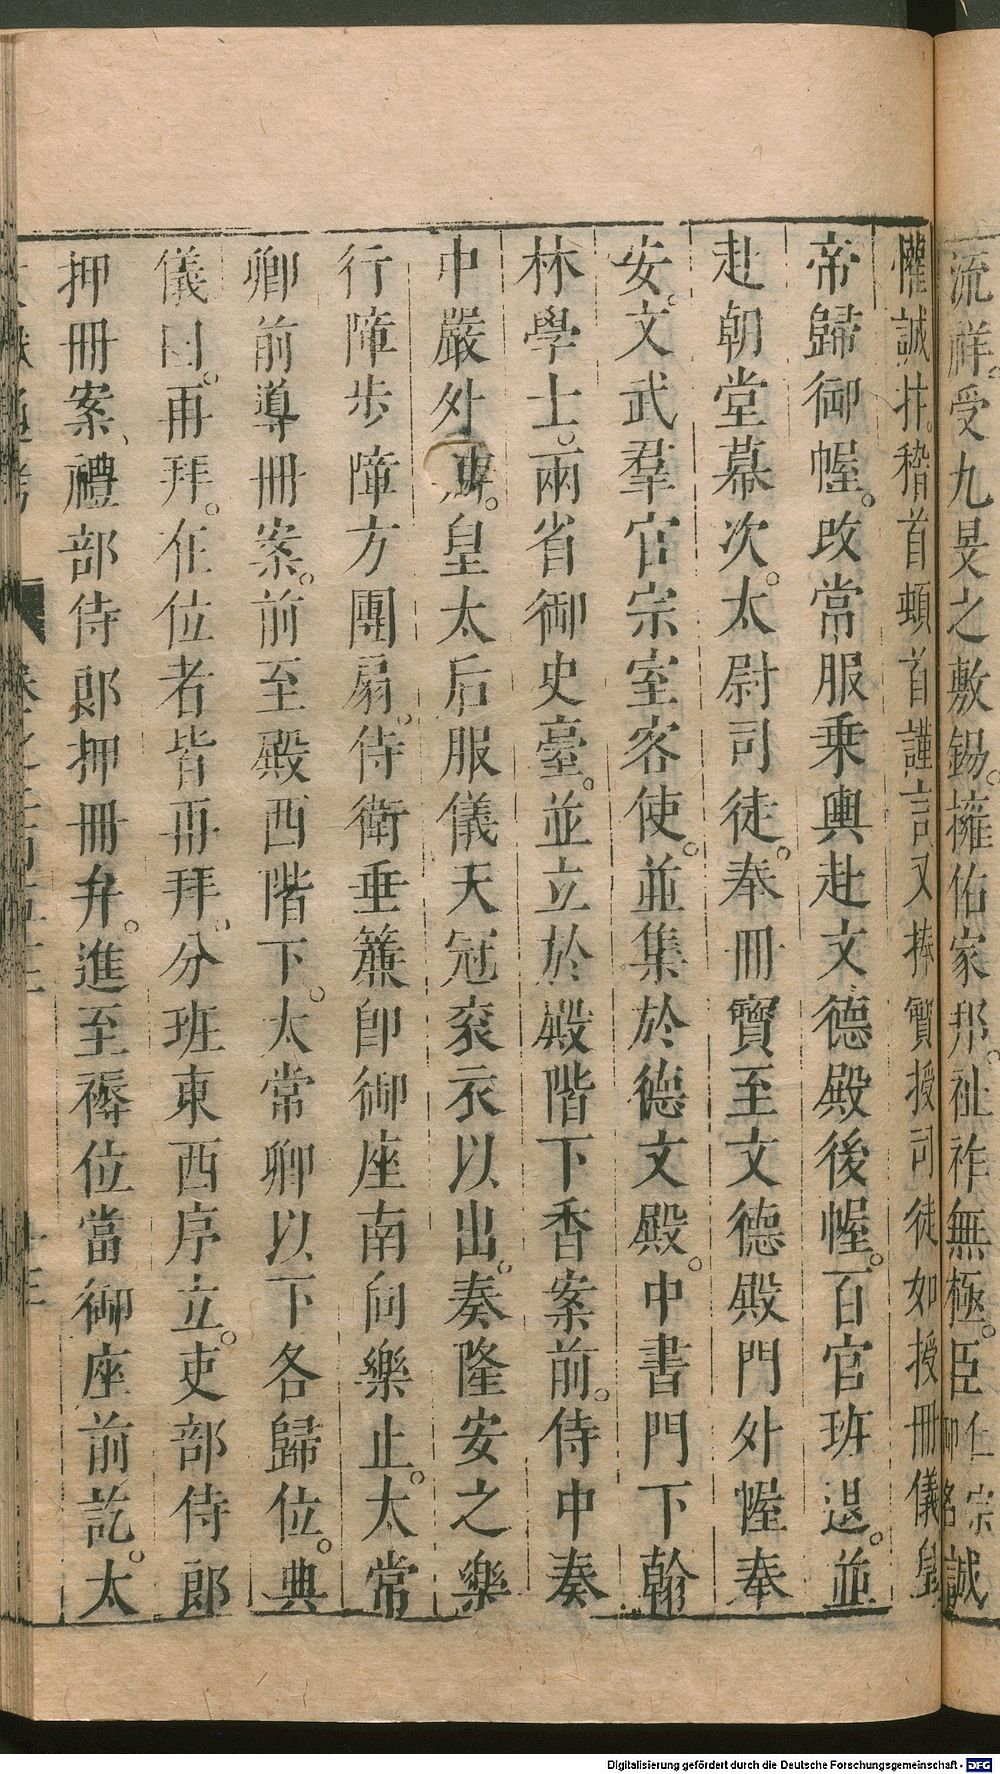 流祥。受九旻之敷錫。擁佑家邦。祉祚無極。臣仁宗御名誠
懽誠抃。稽首頓首謹言又捧寶授司徒如授冊儀畢
帝歸御幄。改常服乗輿赴文德殿後幄。百官班退。並
赴朝堂幕次。太尉司徒。奉冊寶至文德殿門外幄奉
安。文武羣官宗室客使。並集於德文殿。中書門下翰
林學士。兩省御史臺。並立於殿階下香案前。侍中奏
中嚴外辦。皇太后服儀天冠衮衣以出。奏隆安之樂
行障步障方團扇。侍衛垂簾卽御座南向樂止。太常
卿前導冊案。前至殿西階下。太常卿以下各歸位。典
儀曰。再拜。在位者皆再拜。分班東西序立。吏部侍郎
押冊案、禮部侍郎押冊弁。進至褥位當御座前訖。太
Digitalisierung gefördert durch die Deutsche Forschungsgemeinschaft - DFG